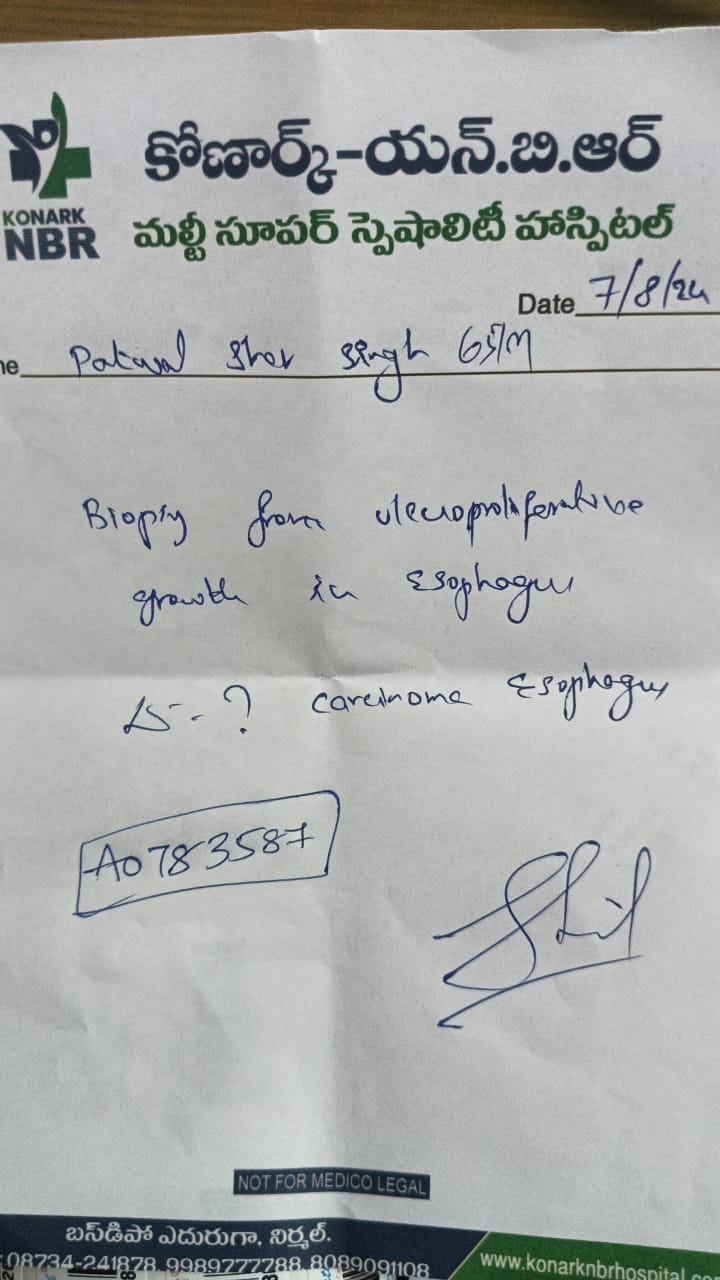 కోణార్క్-యన్.బి.ఆర్
KONARK
NBR
మల్టీ సూపర్ స్పెషాలిటీ హాస్పిటల్
Date 7/8/24
me Patwal Sher Singh 65/M
Biopsy from ulceroproliferative
growth in Esophagus
? carcinoma Esophagus
A0783587
NOT FOR MEDICO LEGAL
బస్‌డిపో ఎదురుగా, నిర్మల్.
08734-241878, 9989777788, 8089091108
www.konarknbrhospital.